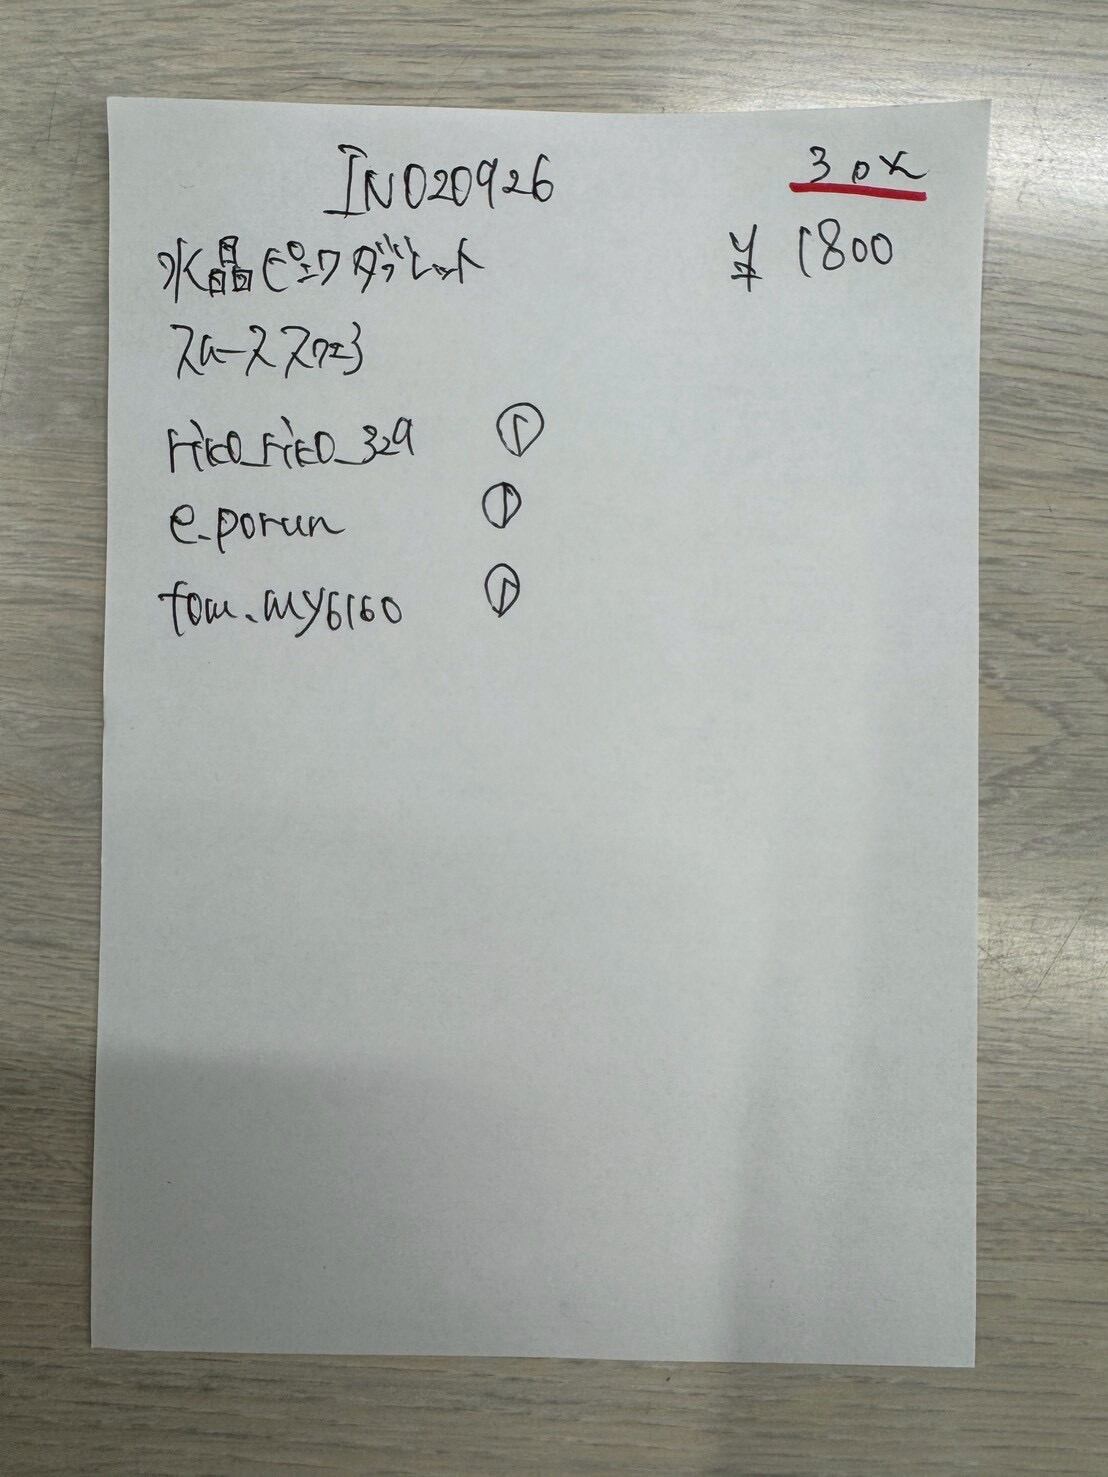 IN020926 30x
水晶ピンクダブレット ¥1800
スロースクエ3
rico_rico_329 ①
e.porun ①
tom.my6160 ①